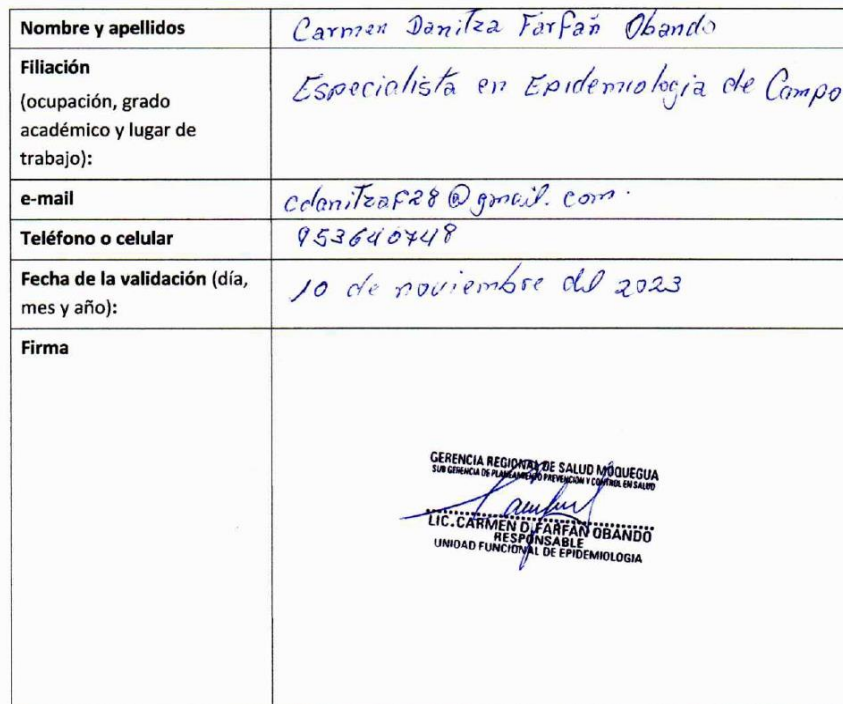 Nombre y apellidos
Carmen Danitza Farfañ Obando
Filiación
(ocupación, grado
académico y lugar de
trabajo):
Especialista en Epidemiologia de Campo
e-mail
cdanitzaf28@gmail.com.
Teléfono o celular
953640748
Fecha de la validación (día,
mes y año):
10 de noviembre del 2023
Firma
GERENCIA REGIONAL DE SALUD MOQUEGUA
SUB GERENCIA DE PLANEAMIENTO PREVENCION Y CONTROL EN SALUD
LIC. CARMEN D. FARFÁN OBANDO
RESPONSABLE
UNIDAD FUNCIONAL DE EPIDEMIOLOGIA